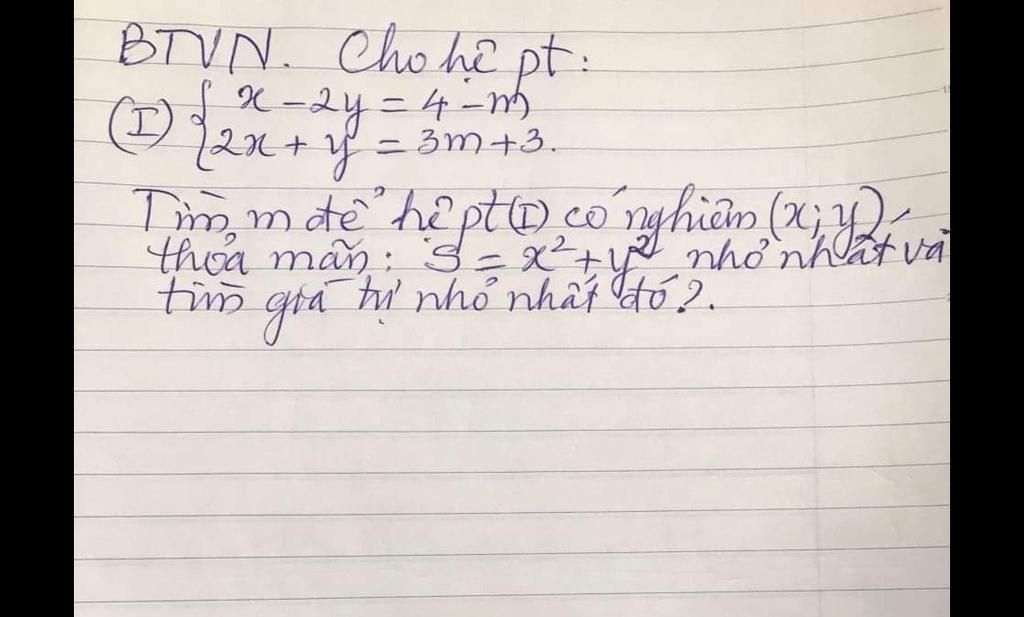 BTVN. Cho hệ pt:
(I) { x - 2y = 4 - m
2x + y = 3m + 3.
Tìm m để hệ pt (I) có nghiệm (x; y)
thỏa mãn: S = x² + y² nhỏ nhất và
tìm giá trị nhỏ nhất đó?.